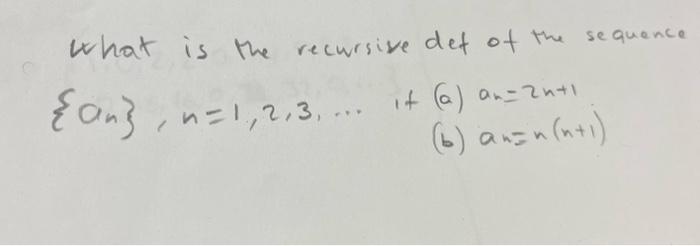 What is the recursive def of the sequence
{an}, n=1,2,3, ... if (a) an=2n+1
(b) an=n(n+1)